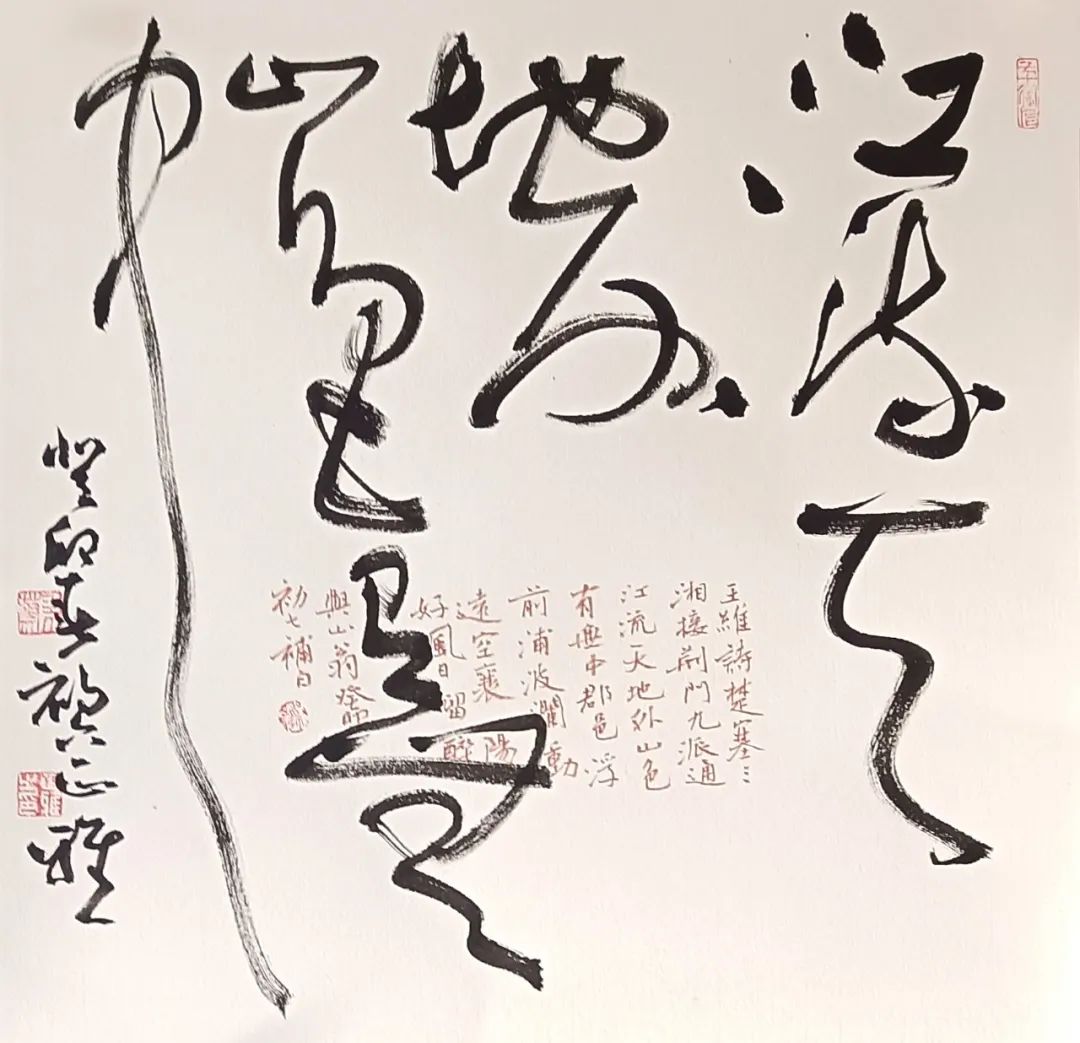 江流天
地外
山色有無
中
王維詩楚塞三
湘接荊門九派通
江流天地外山色
有無中郡邑浮
前浦波瀾動
遠空襄陽
好風日留醉
與山翁癸卯
初七補白
癸卯春正雅